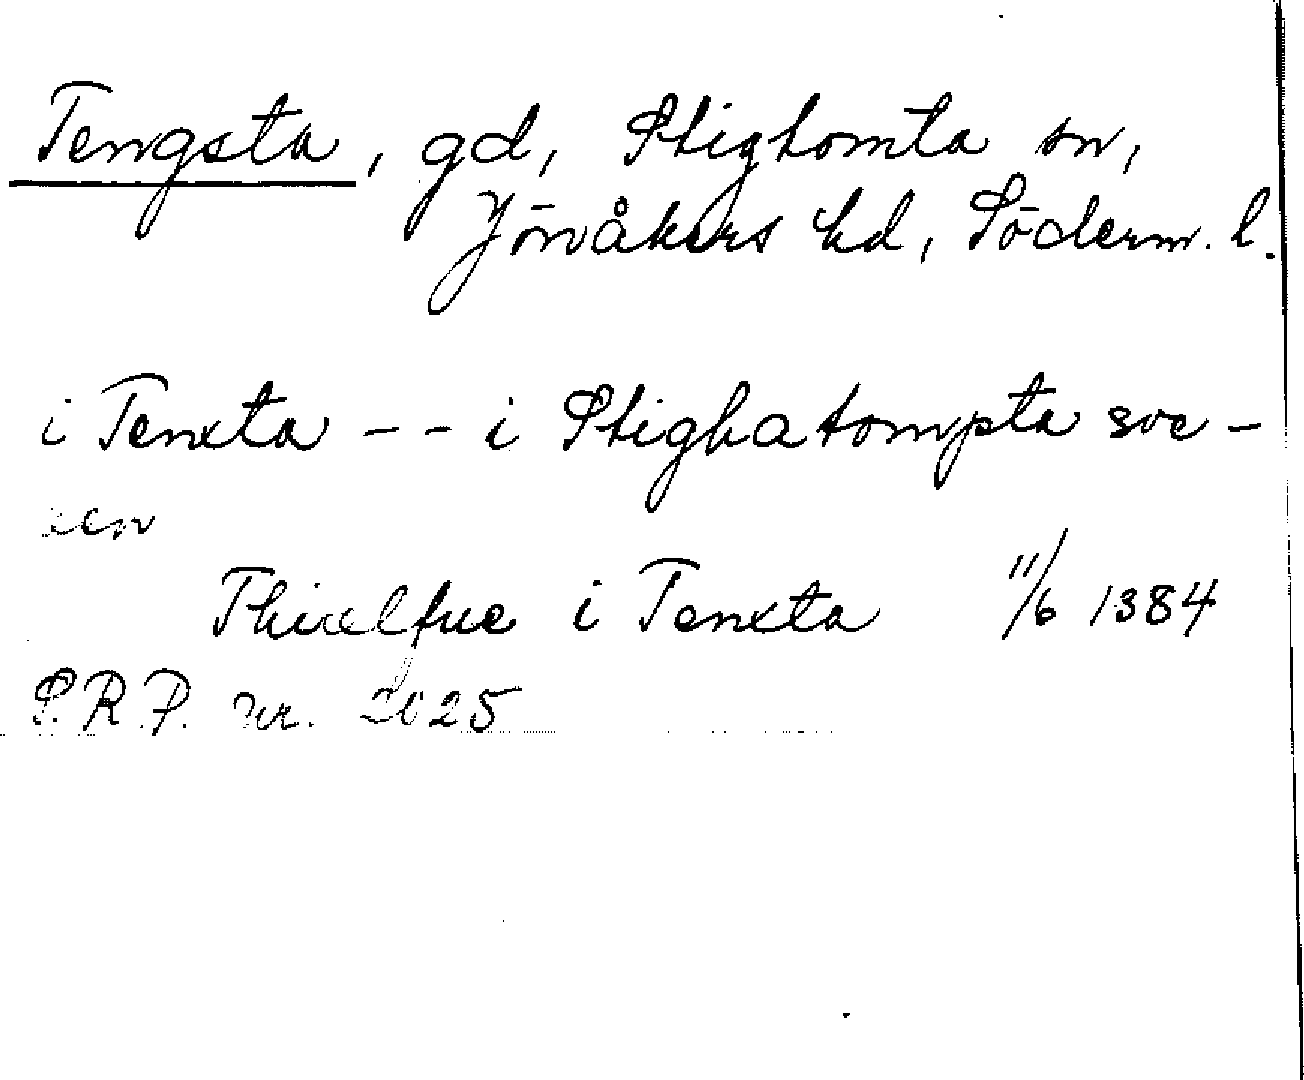 Tengsta, gd, Stigtomta sn,
Jönåkers hd, Söderm. l.
i Tenxta -- i Stighatompta soc-
nen
Thixelfue i Tenxta 11/6 1384
S.R.P. nr. 2025